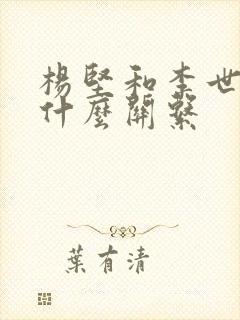 楊堅和李世
什麼關繫
葉有清